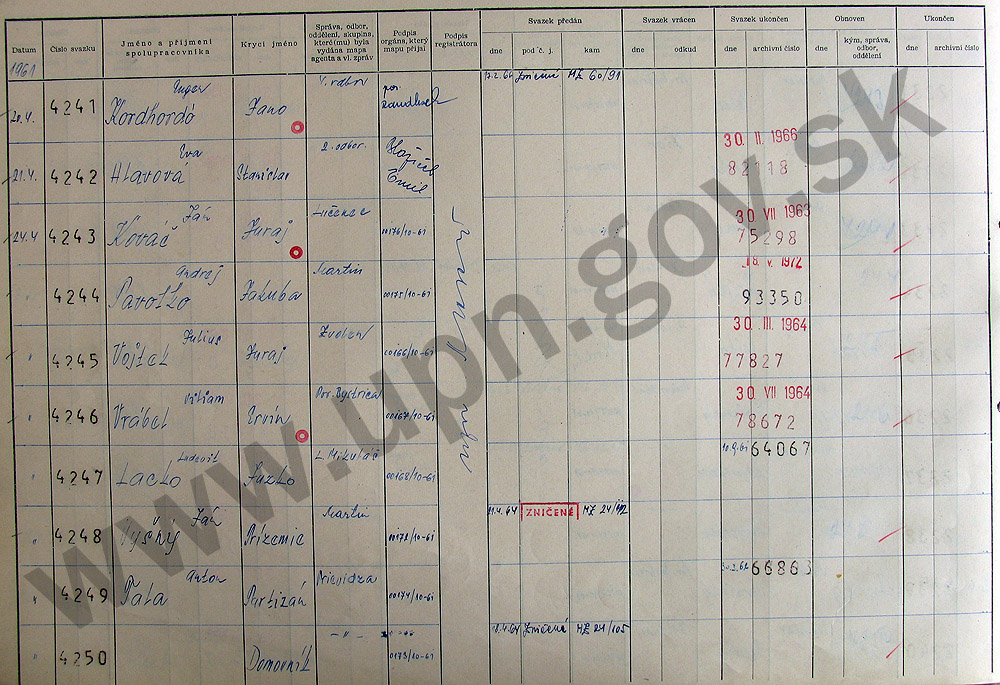 Datum
Číslo svazku
Jméno a příjmení spolupracovníka
Krycí jméno
Správa, odbor, oddělení, skupina, které(mu) byla vydána mapa agenta a vl. zpráv
Podpis orgána, který mapu přijal
Podpis registrátora
Svazek předán
dne
pod č. j.
kam
Svazek vrácen
dne
odkud
Svazek ukončen
dne
archivní číslo
Obnoven
dne
kým, správa, odbor, oddělení
Ukončen
dne
archivní číslo
1961
20.4. 4241 Kordhordó Fano 17.2.64 Zničené MZ 60/91
21.4. 4242 Eva Hlavová Stanislav 2. odbor. 30. II. 1966 82118
24.4 4243 Ján Kováč Juraj Lučenec 00176/10-61 30 VII 1963 75298
4244 Andrej Pavolko Jakuba Martin 00175/10-61 18. V. 1972 93350
" 4245 Július Vojtek Juraj Zvolen 00166/10-61 30. III. 1964 77827
" 4246 Viliam Vrábel Ervín Pov. Bystrica 00167/10-61 30 VII 1964 78672
" 4247 Ludevít Lacko L. Mikuláš 00168/10-61 64067
" 4248 Ján Vyšný Prízemie Martin 00172/10-61 ZNIČENÉ MZ 24/112
" 4249 Anton Ťaťa Partizán Prievidza 00174/10-61 66863
" 4250 Domovník -"- 00173/10-61 Zničená MZ 24/105
www.upn.gov.sk